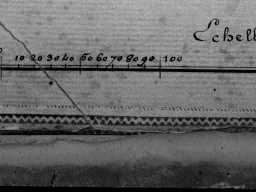 Echell
10 20 30 40 50 60 70 80 90 100